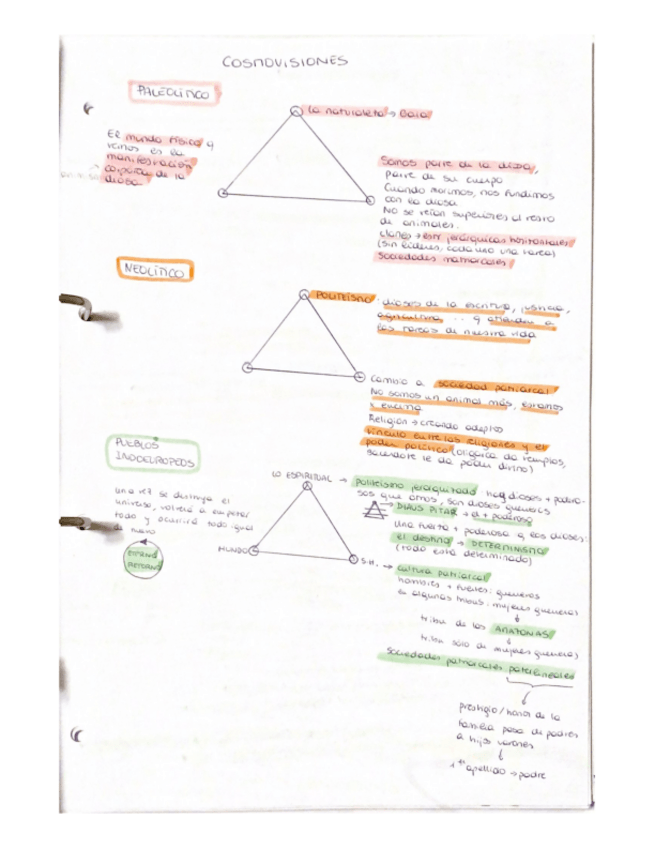 COSMOVISIONES
PALEOLÍTICO
La naturaleza → Gaia
El mundo físico q
vemos es la
manifestación
corporea de la
diosa
Somos parte de la diosa,
parte de su cuerpo
Cuando morimos, nos fundimos
con la diosa
No se veían superiores al resto
de animales.
clanes → estr jerárquicas horizontales
(sin líderes, cada uno una tarea)
sociedades matriarcales
NEOLÍTICO
POLITEISMO: dioses de la escritura, justicia,
agricultura ... q atienden a
las tareas de nuestra vida
Cambio a sociedad patriarcal
No somos un animal más, estamos
x encima
Religión → creando adeptos
Vínculo entre las religiones y el
poder político (oligarca de templos,
sacerdote le da poder divino)
PUEBLOS
INDOEUROPEOS
LO ESPIRITUAL → politeismo jerarquizado hay dioses + podero-
sos que otros, son dioses guerreros
DIAUS PITAR → el + poderoso
Una fuerza + poderosa q los dioses:
el destino → DETERMINISMO
(todo está determinado)
una vez se destruya el
universo, volverá a empezar
todo y ocurrirá todo igual
de nuevo
ETERNO
RETORNO
MUNDO
S.H. → cultura patriarcal
hombres + fuertes: guerreros
en algunas tribus: mujeres guerreras
tribu de las AMAZONAS
tribu sólo de mujeres guerreras
Sociedades patriarcales patrilineales
prestigio/honor de la
familia pasa de padres
a hijos varones
1er apellido → padre